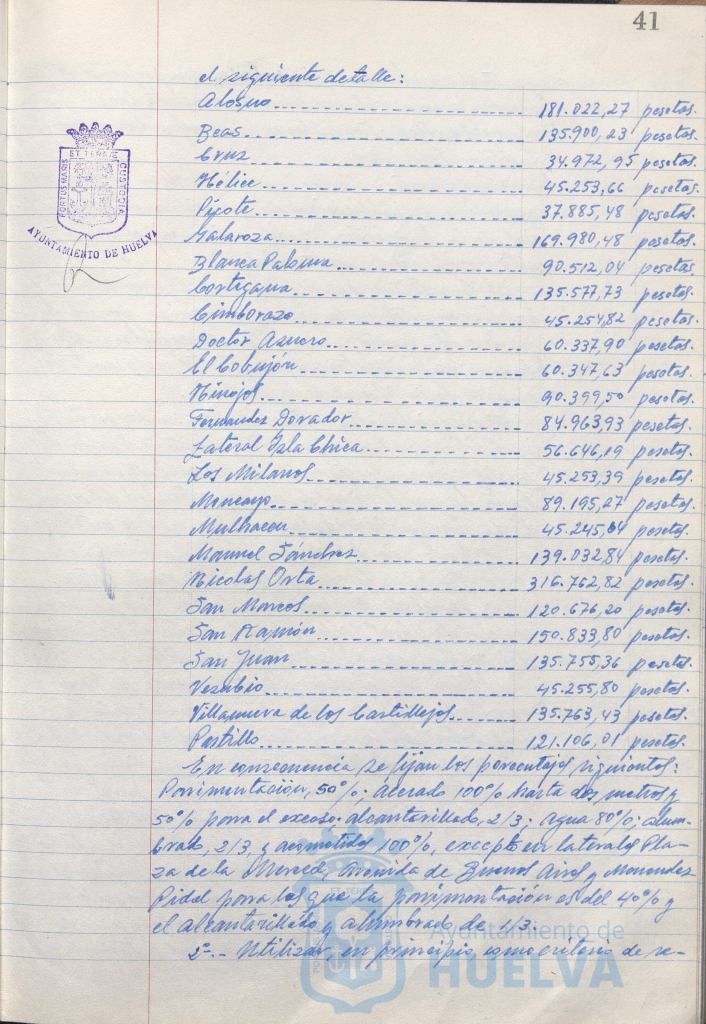 41
el siguiente detalle:
Alosno 181.022,27 pesetas.
Beas 135.900,23 pesetas.
Cruz 34.972,95 pesetas.
Hélice 45.253,66 pesetas.
Pivote 37.885,48 pesetas.
Galaroza 169.980,48 pesetas.
Blanca Paloma 90.512,04 pesetas,
Cortegana 135.577,73 pesetas.
Cimborazo 45.254,82 pesetas.
Doctor 60.337,90 pesetas.
El Cobujón 60.347,63 pesetas.
Hinojos 90.399,50 pesetas.
Fernandez Dorador 84.963,93 pesetas.
Lateral Isla Chica 56.646,19 pesetas.
Los Milanos 45.253,39 pesetas.
Moncayo 89.195,27 pesetas.
Mulhacen 45.245,64 pesetas.
Manuel Sánchez 139.032,84 pesetas.
Nicolas Orta 316.762,82 pesetas.
San Marcos 120.676,20 pesetas.
San Ramón 150.833,80 pesetas.
San Juan 135.755,36 pesetas.
Vesubio 45.255,80 pesetas.
Villanueva de los Castillejos 135.763,43 pesetas.
Postillo 121.106,01 pesetas.
En consecuencia se fijan los porcentajes siguientes:
Pavimentación, 50%; acerado 100% hasta dos metros y
50% para el exceso: alcantarillado, 2/3; agua 80%; alum-
brado, 2/3, y acometidas 100%, excepto en laterales Pla-
za de la Merced, avenida de Buenos Aires y Menendez
Pidal para los que la pavimentación es del 40% y
el alcantarillado y alumbrado de 1/3.
2º.- Utilizar, en principio, como criterio de re-
PORTUS MARIS
ET TERRAE
CUSTODIA
AYUNTAMIENTO DE HUELVA
Ayuntamiento de
HUELVA